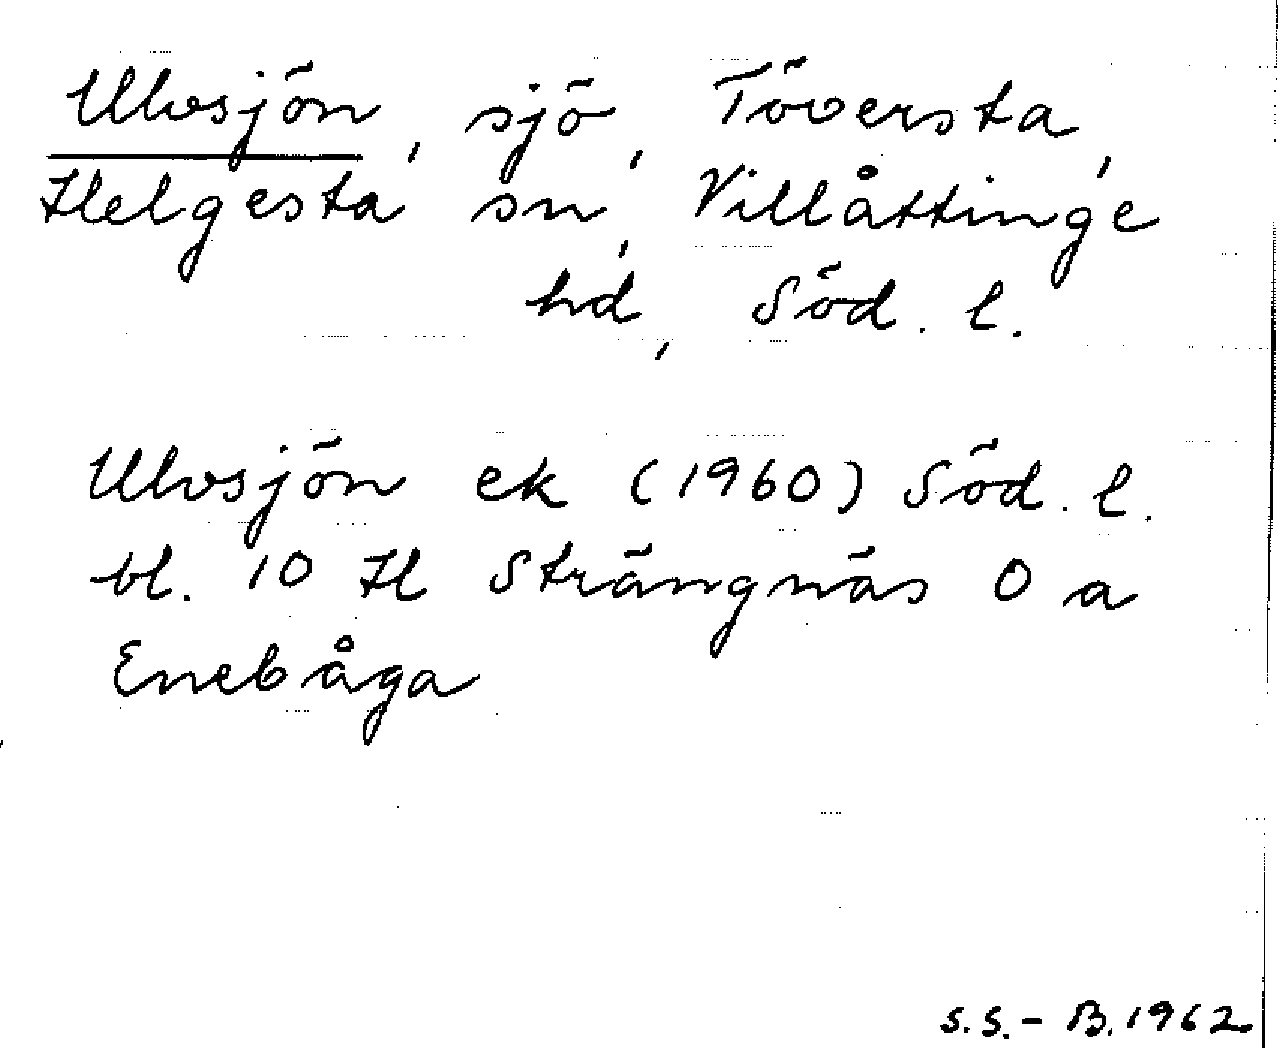 Ulvsjön, sjö, Töversta,
Helgesta sn, Villåttinge
hd, Söd. l.
Ulvsjön ek (1960) Söd. l.
bl. 10 H Strängnäs 0 a
Enebåga
S.S. - B. 1962